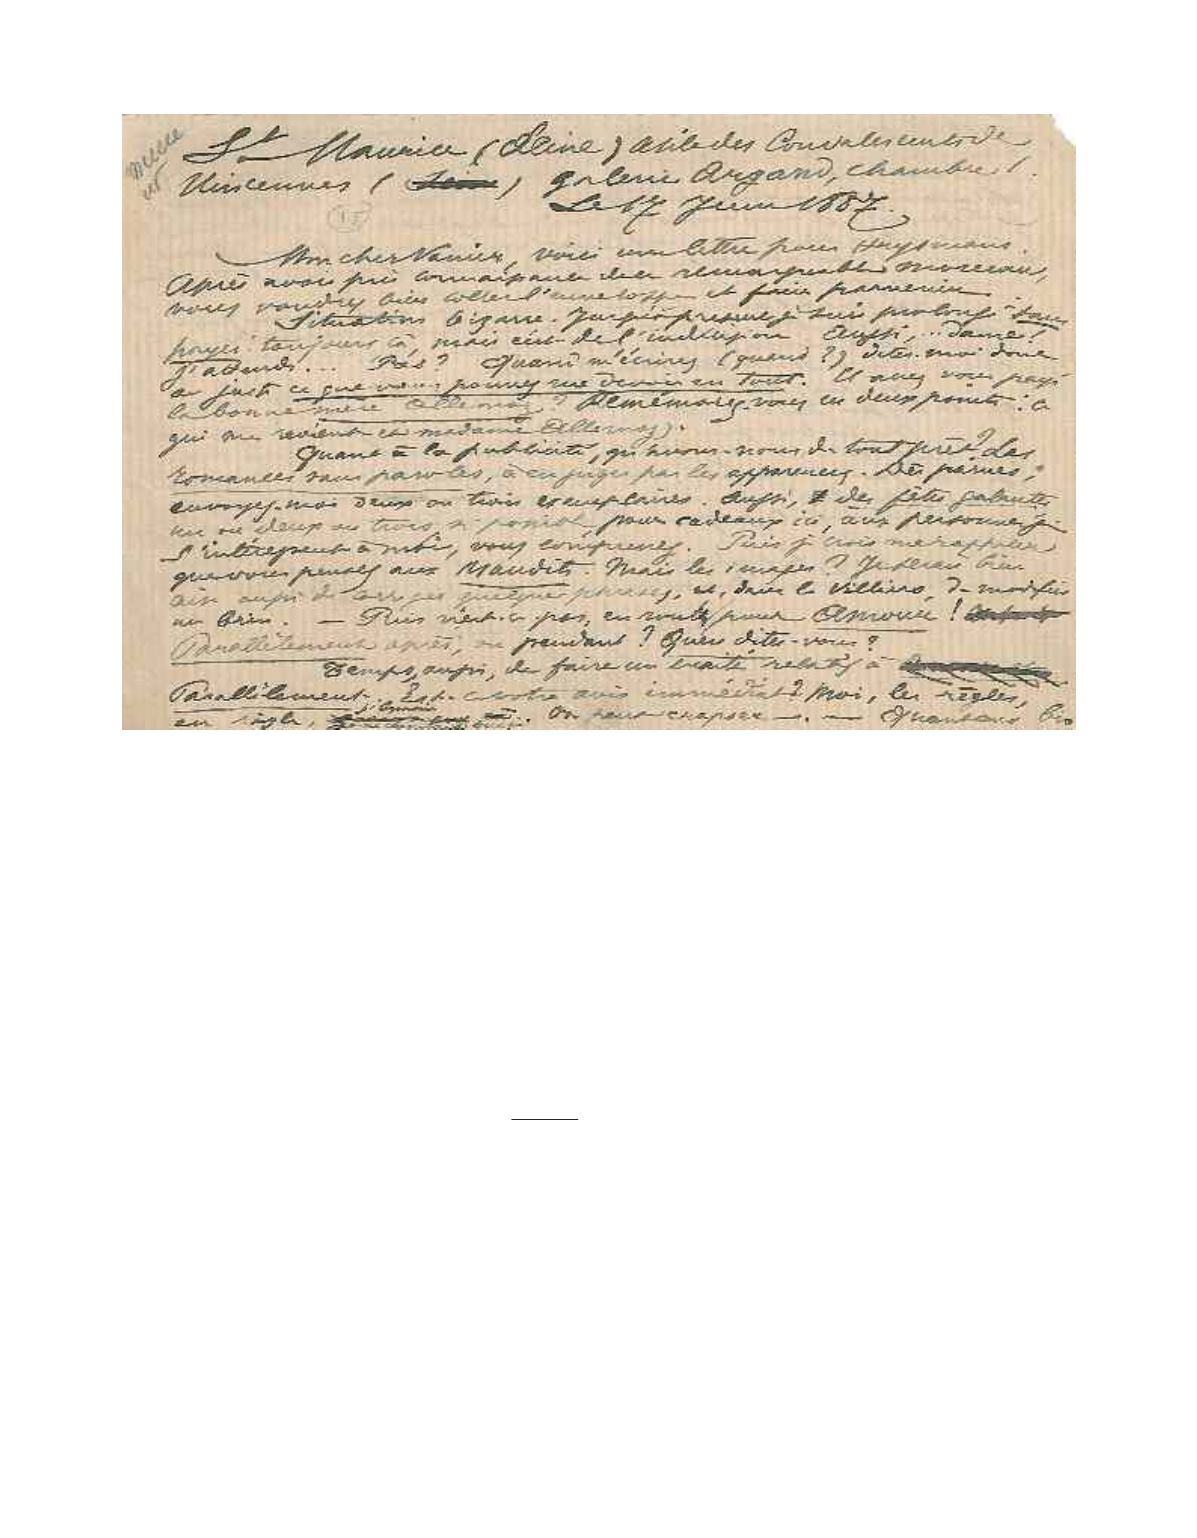 St Maurice (Seine) asile des Convalescents de
Vincennes (Seine) galerie Argand, chambre 1.
Le 17 Juin 1887.
15
Mon cher Vanier, voici une lettre pour Huysmans.
Après avoir pris connaissance de ce remarquable morceau,
vous voudrez bien coller l'enveloppe et faire parvenir.
Situation bizarre. Jusqu'à présent je suis prolongé sans
payer toujours là, mais c'est de l'indécision Aussi, .. dame!
J'attends... Pas? Quand m'écrirez (quand?) dites-moi donc
au juste ce que vous pouvez me devoir en tout. Et avez vous payé
la bonne mère Allemoz? Remémorez-vous en deux points: ce
qui me revient et madame Allemoz).
Quant à la publicité, qu'avons-nous de tout prêt? Les
Romances sans paroles, à en juger par les apparences. Dès parues,
envoyez-moi deux ou trois exemplaires. Aussi, des fêtes galantes
un ou deux ou trois, si possible, pour cadeaux ici, aux personnes qui
s'intéressent à moi, vous comprenez. Puis je crois me rappeler
que vous pensez aux Maudits. Mais les images? Je serais bien
aise aussi de corriger quelques phrases, et, dans le Villiers, de modifier
un brin. — Puis n'est-ce pas, en route pour Amour!
Parallèlement après, ou pendant? Qu'en dites-vous?
Temps, aussi, de faire un traité relatif à
Parallèlement. Est-ce votre avis immédiat? Moi, les règles,
en règle, . On peut . — Quant aux